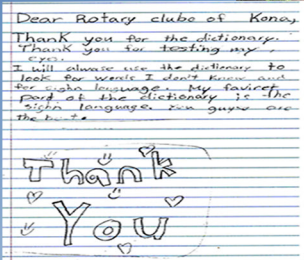 Dear Rotary clube of Kona,
Thank you for the dictionary.
Thank you for testing my
eyes.
I will alwase use the dictionary to
look for words I don't know and
for sighn language. My faviret
part of the dictionary is the
sighn language. You guys are
the best.
Thank
You